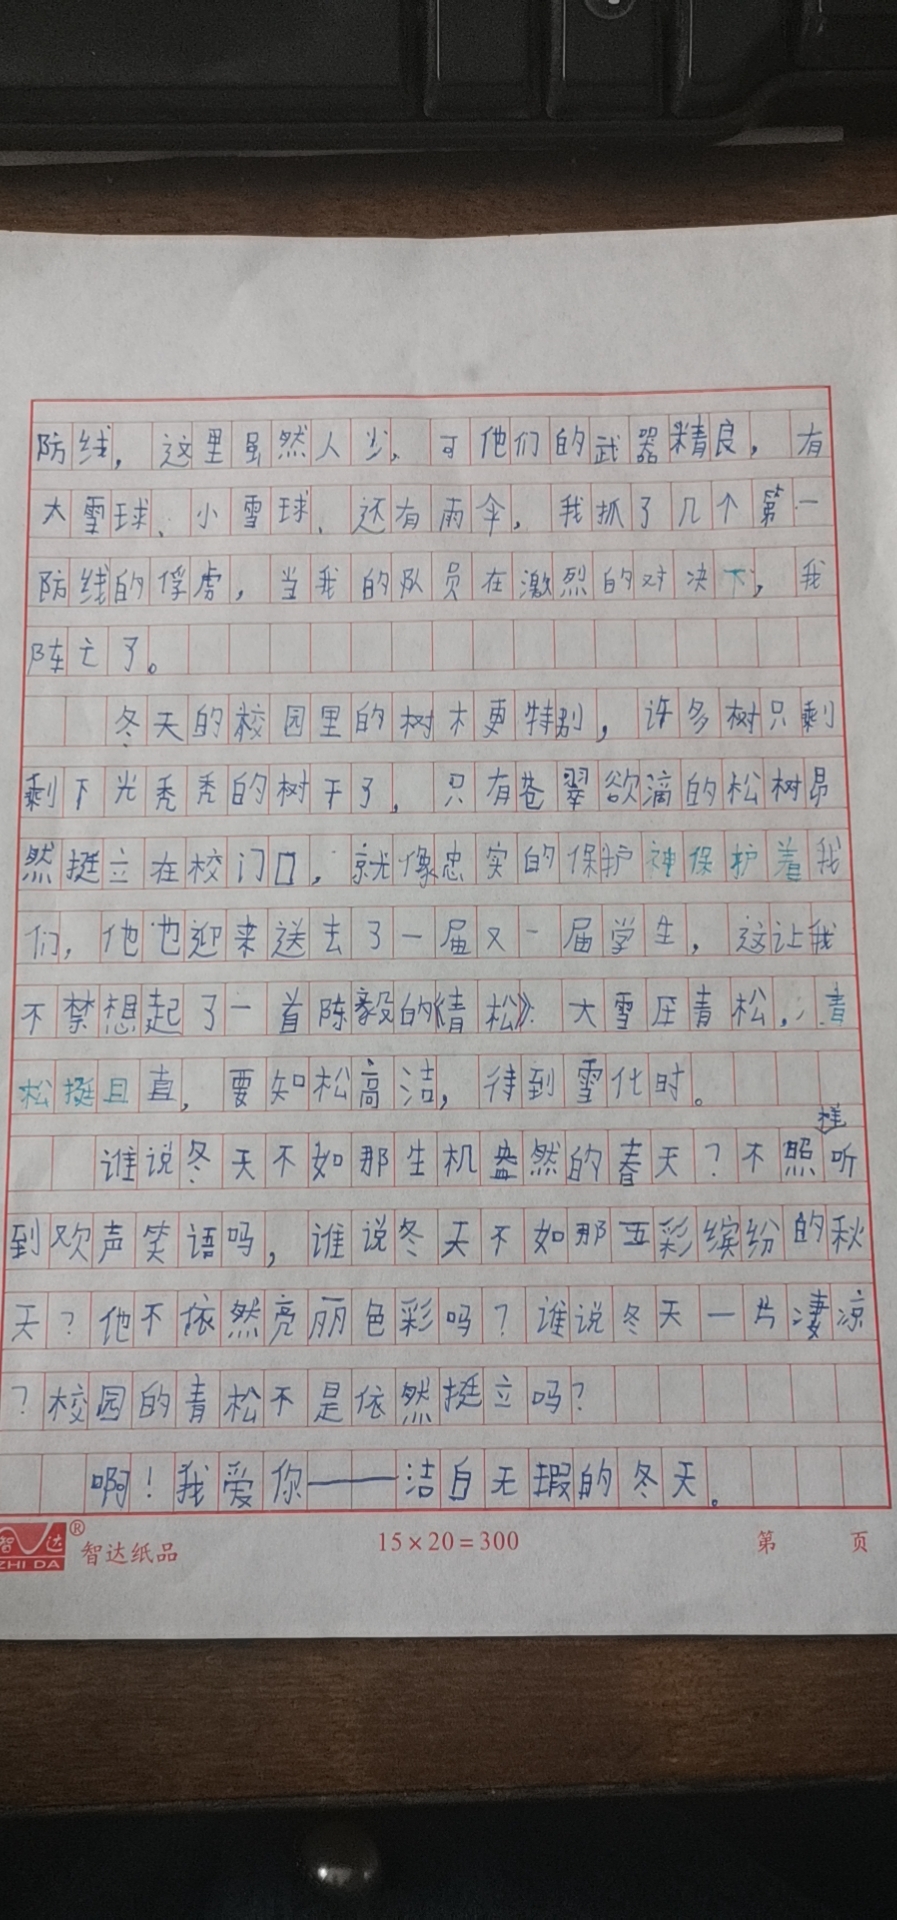 防线，这里虽然人少，可他们的武器精良，有
大雪球、小雪球、还有雨伞，我抓了几个第一
防线的俘虏，当我的队员在激烈的对决下，我
阵亡了。
冬天的校园里的树木更特别，许多树只剩
剩下光秃秃的树干了，只有苍翠欲滴的松树昂
然挺立在校门口，就像忠实的保护神保护着我
们，他也迎来送去了一届又一届学生，这让我
不禁想起了一首陈毅的《青松》：大雪压青松，青
松挺且直，要知松高洁，待到雪化时。
样
谁说冬天不如那生机盎然的春天？不照听
到欢声笑语吗，谁说冬天不如那五彩缤纷的秋
天？他不依然亮丽色彩吗？谁说冬天一片凄凉
？校园的青松不是依然挺立吗？
啊！我爱你——洁白无瑕的冬天。
智达 ® 智达纸品 15×20=300 第 页
ZHI DA